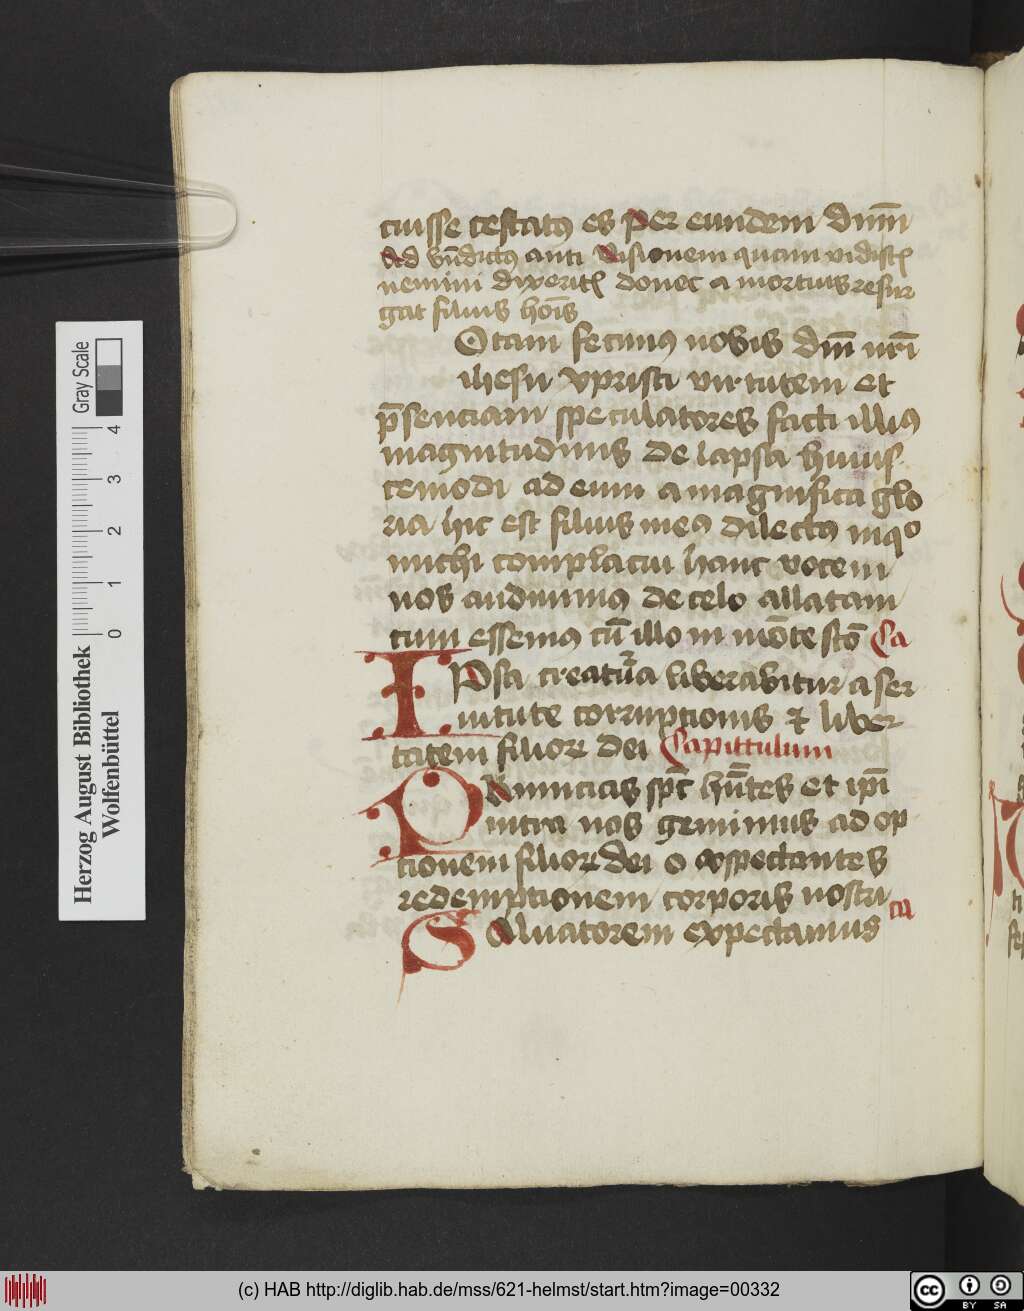 cuisse testatus es Per eundem dnm̄
Ad bn̄dictus anti Visionem quam vidistis
nemini dixeritis donec a mortuis resur
gat filius hoīs
Otam fecimus vobis dn̄i nr̄i
ihesu xpristi virtutem et
p̄senciam speculatores facti illius
magnitudinis delapsa huius
cemodi ad eum a magnifica glo
ria hic est filius meus dilectus in quo
michi complacui hanc vocem
nos audiuimus de celo allatam
cum essemus cū illo in mōte sctō Ca
IPsa creatura liberabitur a ser
uitute corrupcionis et liber
tatem filiorum dei Capittulum
PRimicias spc̄ hn̄tes et ip̄i
intra nos gemimus ad op
cionem filiorum dei expectantes
redempcionem corporis nostri
ca
SAluatorem expectamus
Herzog August Bibliothek
Wolfenbüttel
Gray Scale
0 1 2 3 4
(c) HAB http://diglib.hab.de/mss/621-helmst/start.htm?image=00332
cc BY SA